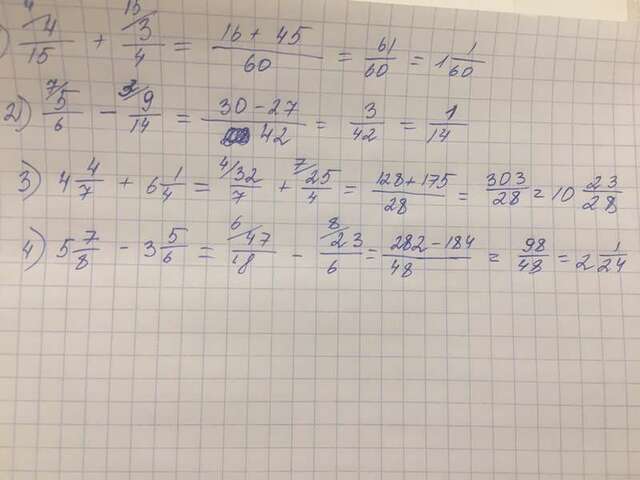 ) ⁴⁄4/15 + ¹⁵⁄3/4 = (16 + 45)/60 = 61/60 = 1 1/60
2) ⁷⁄5/6 - ³⁄9/14 = (30 - 27)/42 = 3/42 = 1/14
3) 4 4/7 + 6 1/4 = ⁴⁄32/7 + ⁷⁄25/4 = (128 + 175)/28 = 303/28 = 10 23/28
4) 5 7/8 - 3 5/6 = ⁶⁄47/8 - ⁸⁄23/6 = (282 - 184)/48 = 98/48 = 2 1/24